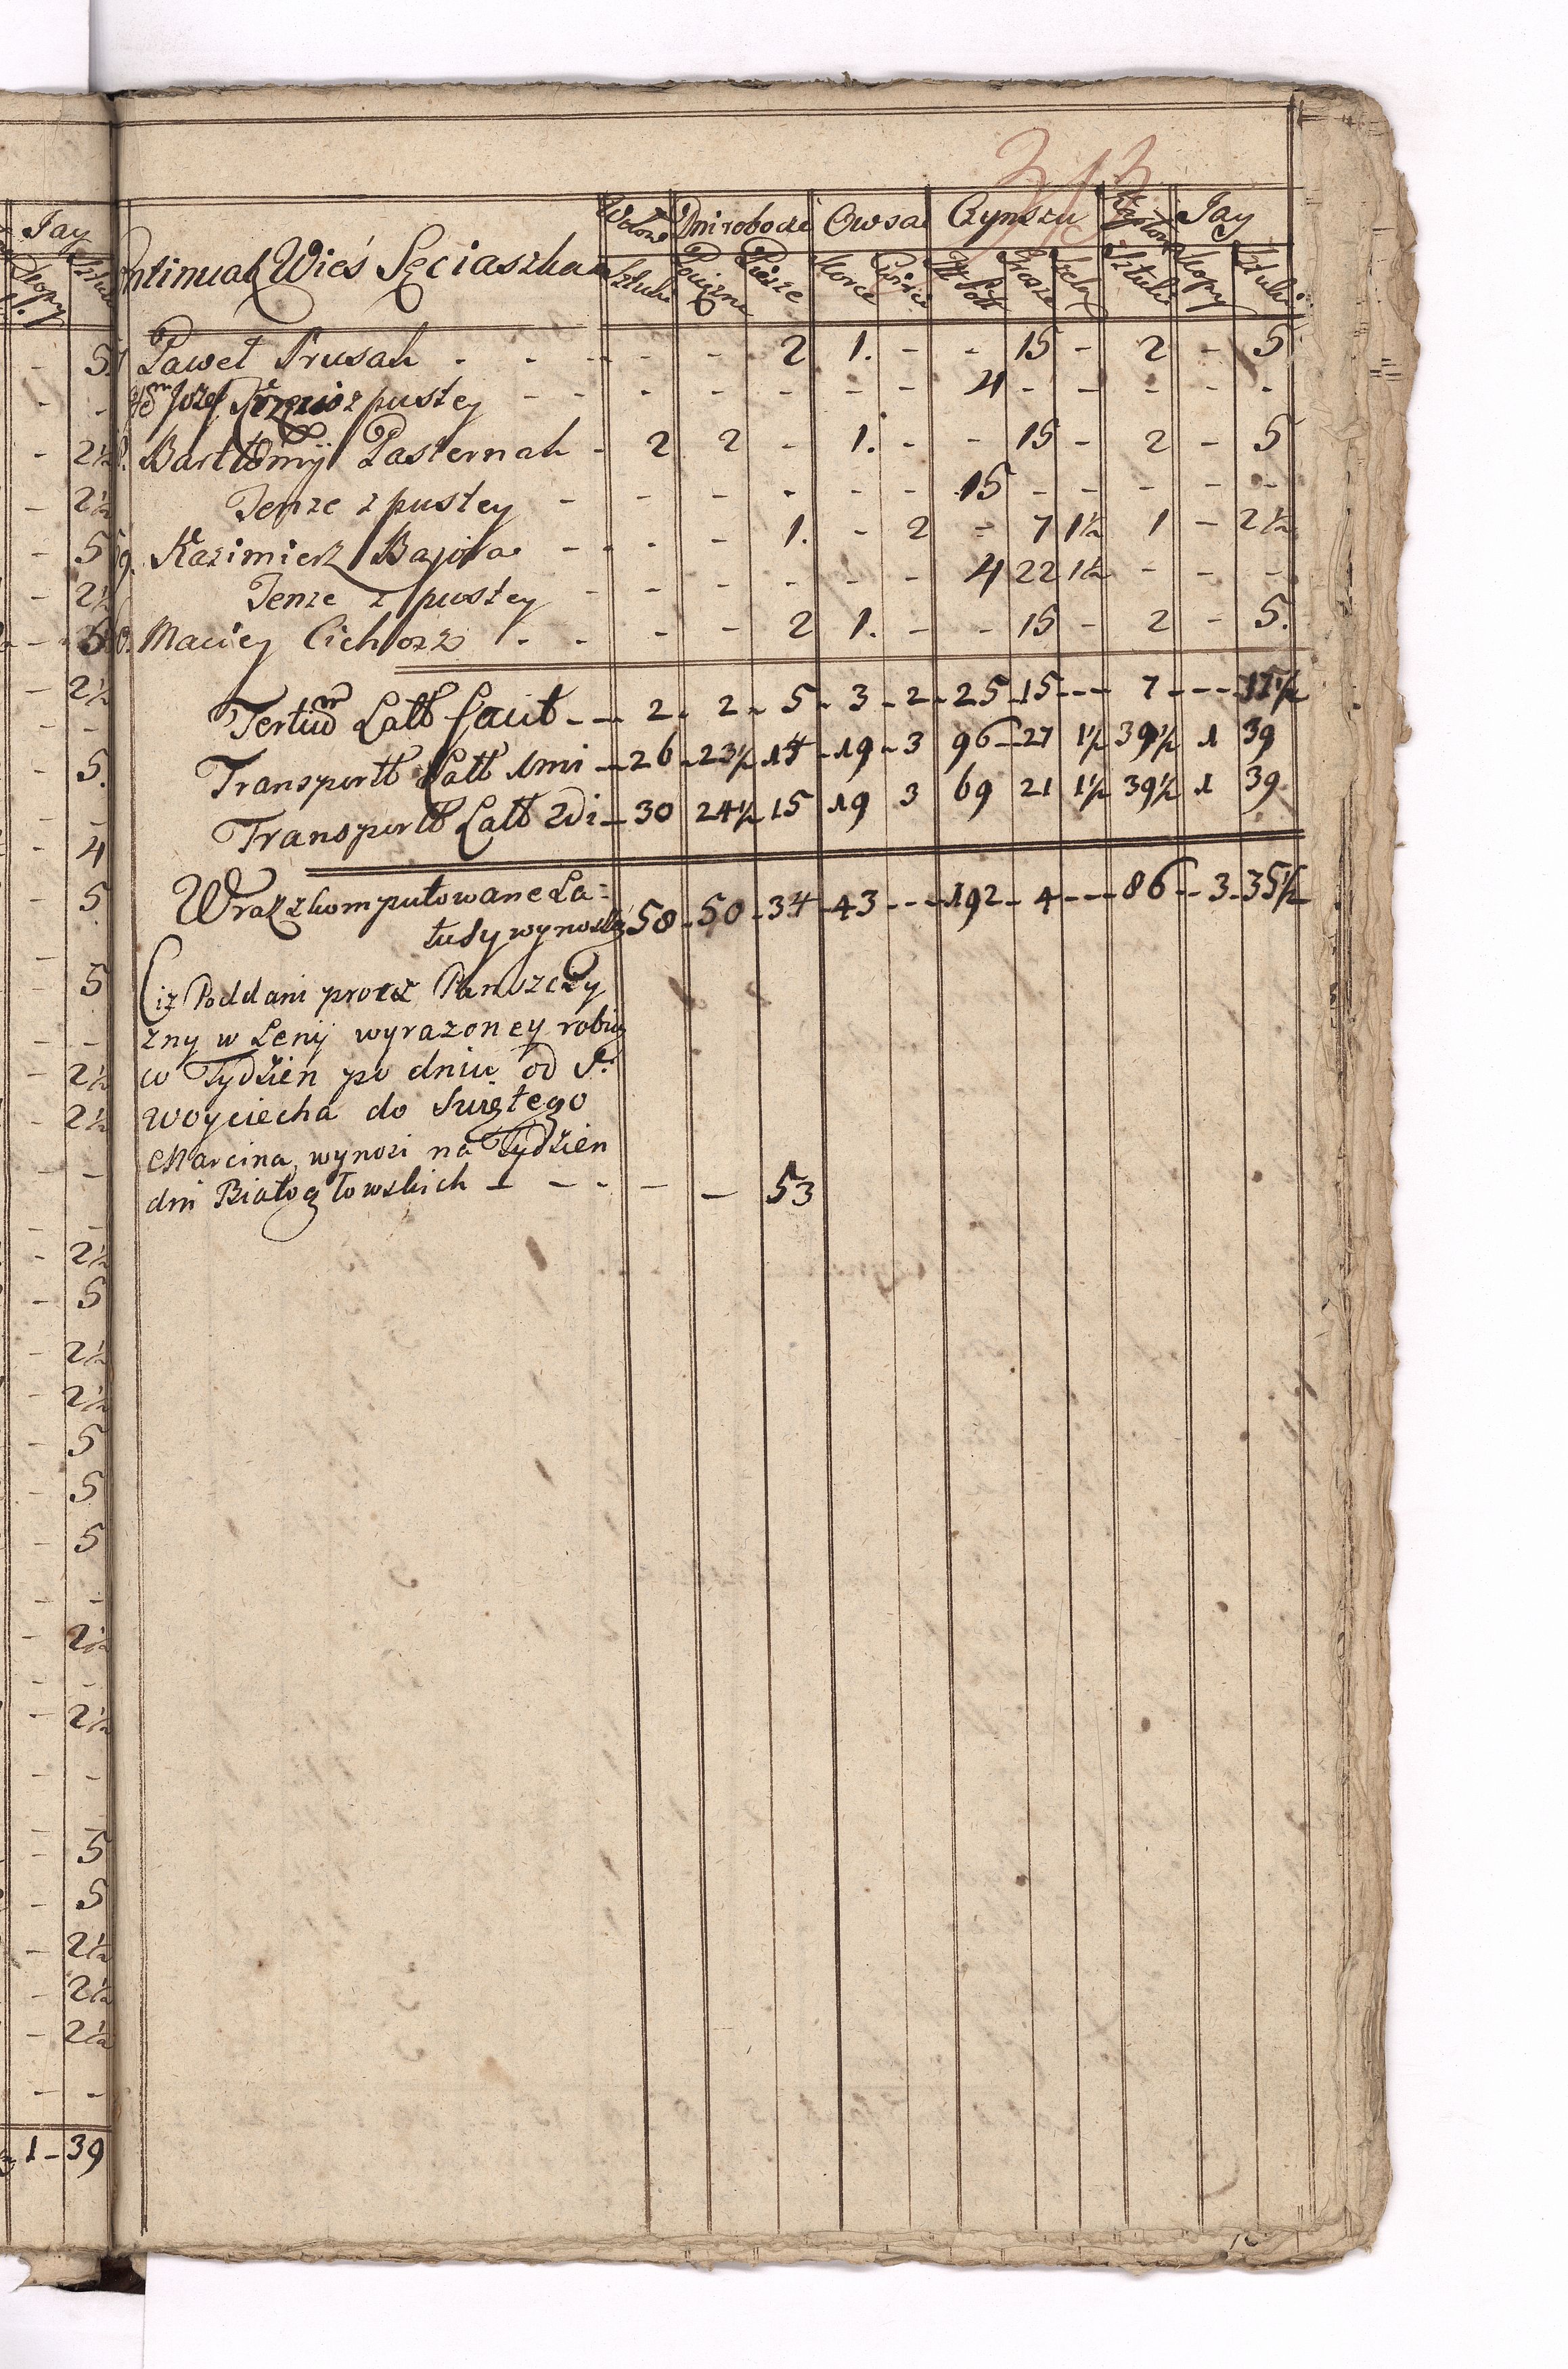 313
Wołów Dni robocze Owsa Czynszu Kapłony Jay
Continuat Wieś Sęciaszka Sztuki Ciągłe Piesze Korce Złł Pol Grosze Szelą Sztuki Kopy Sztuki
Paweł Prusak - - - - - 2 1. - - 15 - 2 - 5
Jozef z pustey - - - - - - - 4 - - - - -
Bartłomij Pasternak - 2 2 - 1. - - 15 - 2 - 5
Tenze z pustey - - - - - - 15 - - - - -
9. Kazimierz Bajora - - - - 1. - 2 - 7 1½ 1 - 2½
Tenze z pustey - - - - - - 4 22 1½ - - -
0. Maciey Cichosz - - - - 2 1. - - 15 - 2 - 5.
Tertium Latt facit - - 2 - 2 - 5 - 3 - 2 - 25 - 15 - - - 7 - - - 17½
Transportt Latt 1mi - 26 - 23½ 14 - 19 - 3 96 - 27 1½ 39½ 1 39
Transportt Latt 2di - 30 24½ 15 19 3 69 21 1½ 39½ 1 39
Wraz zkomputowane La=
tusy wynoszą 58 - 50 - 34 - 43 - - - 192 - 4 - - - 86 - 3 - 35½
Ciz Poddani procz Panszczy
zny w Leny wyrazoney robią
w Tydzien po dniu od S.
Woyciecha do Swiętego
Marcina, wynosi na Tydzien
dni Białogłowskich - - - - - 53
Jay
Kopy Sztuki
- 5
- -
- 2½
- 2½
- 5
- 2½
- 5
- 2½
- -
- 5.
- 4
- 5
- 5
- -
- 2½
- 2½
- -
- -
- 2½
- 5
- 2½
- 2½
- 5
- 5
- 5
- -
- 2½
- -
- 2½
- -
- 5
- 5
- 2½
- 2½
- 2½
- -
1 - 39